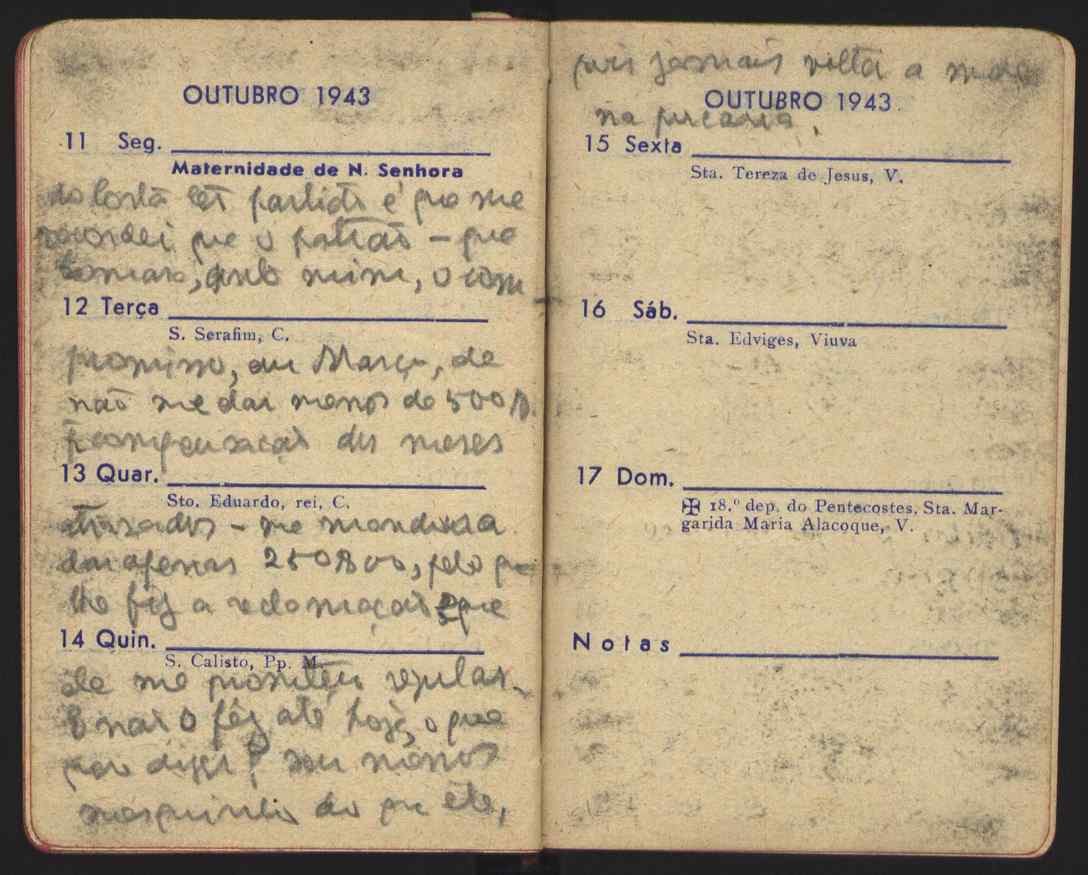 OUTUBRO 1943
11 Seg.
Maternidade de N. Senhora
da Costa ter partido é que me
recordei que o patrão — que
tomara, junto mim, o com-
12 Terça
S. Serafim, C.
promisso, em Março, de
não me dar menos de 500$
compensação dos meses
13 Quar.
Sto. Eduardo, rei, C.
atrasados — me mandara
dar apenas 250$00, pelo que
lhe fiz a reclamação que
14 Quin.
S. Calisto, Pp. M.
ele me prometeu regular.
E não o fêz até hoje, o que
quer dizer? sou menos
mesquinho do que êle,
pois jamais voltei a
OUTUBRO 1943.
na
15 Sexta
Sta. Tereza de Jesus, V.
16 Sáb.
Sta. Edviges, Viuva
17 Dom.
✠ 18.º dep. do Pentecostes, Sta. Mar-
garida Maria Alacoque, V.
Notas